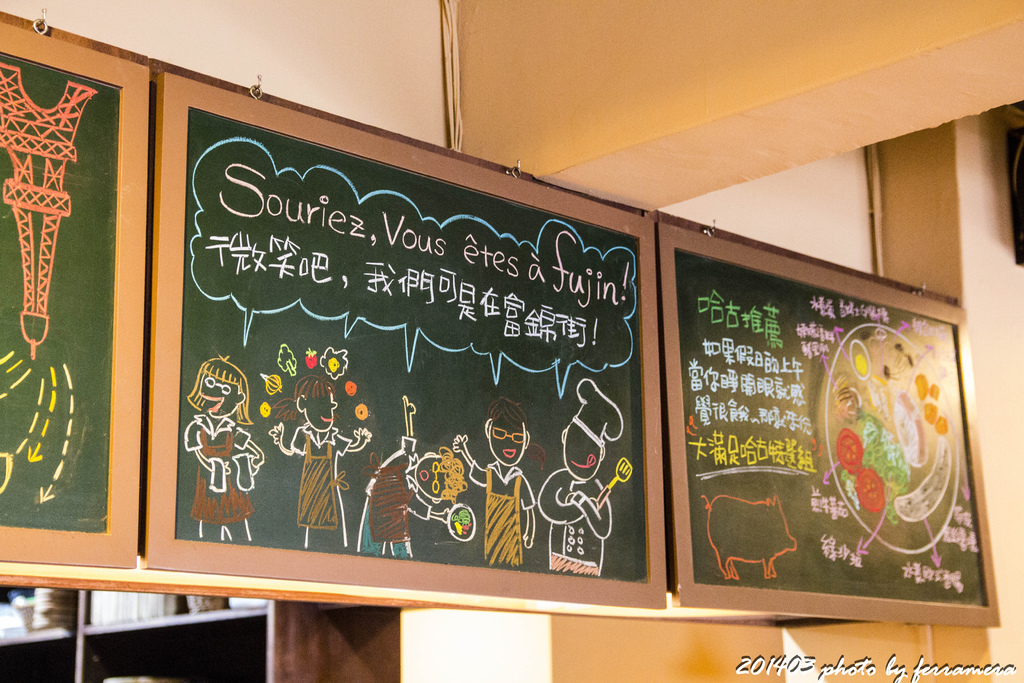 Souriez, Vous êtes à fujin!
微笑吧，我們可是在富錦街！
哈古推薦
如果假日的上午
當你睜開眼就感
覺很餓、那就來份
大滿足哈古特餐組
煎牛番茄
綠沙拉
201403 photo by ferramera